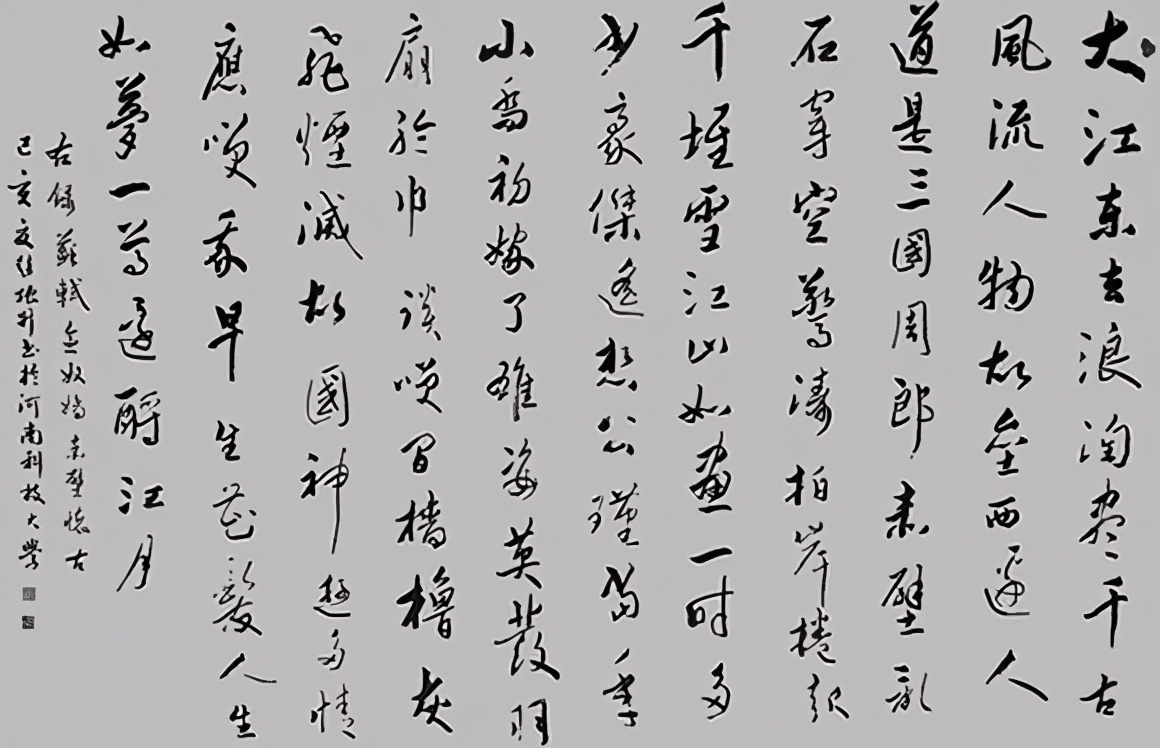 大江東去浪淘盡千古
風流人物故壘西邊人
道是三國周郎赤壁亂
石穿空驚濤拍岸捲起
千堆雪江山如畫一時多
少豪傑遙想公瑾當年
小喬初嫁了雄姿英發羽
扇於巾談笑間檣櫓灰
飛煙滅故國神遊多情
應笑我早生花髮人生
如夢一尊還酹江月
右錄蘇軾念奴嬌赤壁懷古
己亥夏張升書於河南科技大學